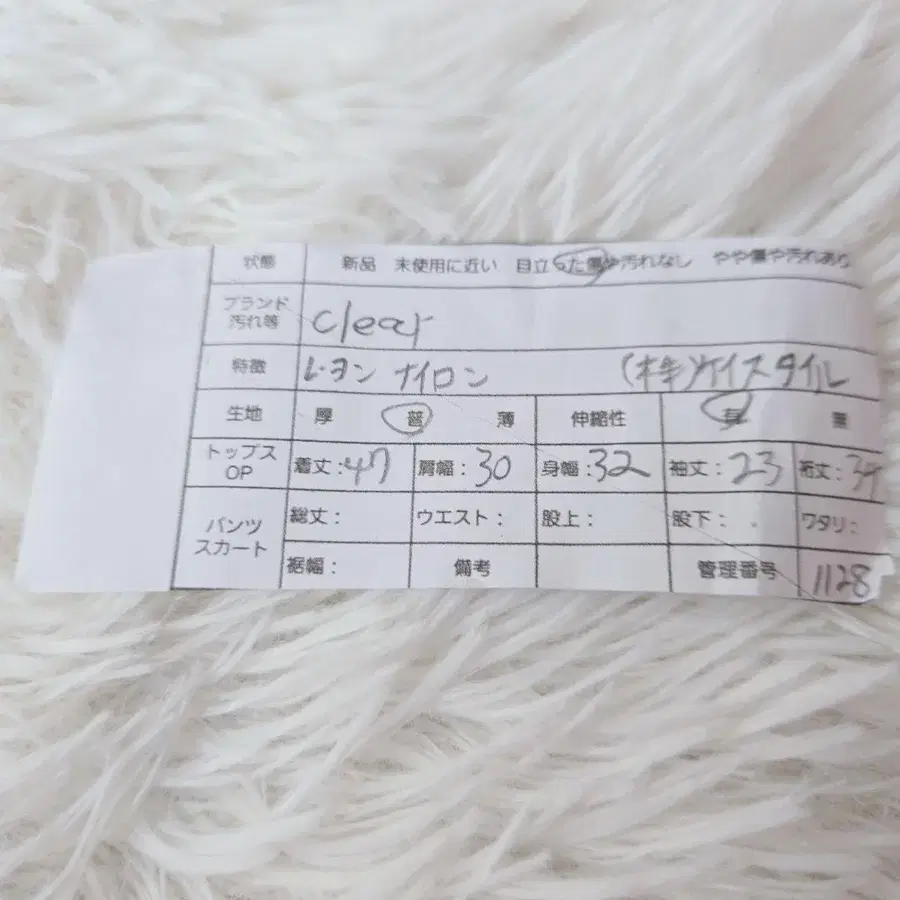 状態 新品 未使用に近い 目立った傷や汚れなし やや傷や汚れあり
ブランド 汚れ等 clear
特徴 レーヨン ナイロン (株)ケイスタイル
生地 厚 普 薄 伸縮性 有 無
トップス OP 着丈:47 肩幅:30 身幅:32 袖丈:23 裄丈:
パンツ スカート 総丈: ウエスト: 股上: 股下: ワタリ:
裾幅: 備考 管理番号 1128